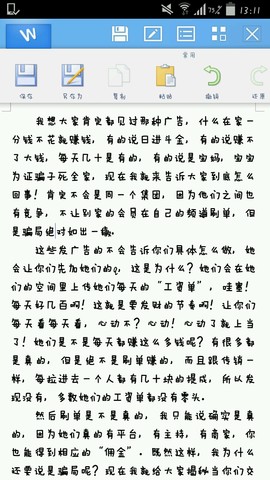 79% 13:11
W
常用
保存
另存为
复制
粘贴
撤销
还原
我想大家肯定都见过那种广告，什么在家一
分钱不花就赚钱，有的说日进斗金，有的说赚不
了大钱，每天几十是有的，有的说是宝妈，宝宝
为证骗子死全家，现在我就来告诉大家到底怎么
回事！肯定不会是同一个集团，因为他们之间也
有竞争，不让别家的会员在自己的频道刷单，但
是骗局绝对如出一辙。
这些发广告的不会告诉你们具体怎么做，她
会让你们先加她们的Q，这是为什么？她们会在她
们的空间里上传她们每天的“工资单”，哇塞！
每天好几百啊！这就是要发财的节奏啊！让你们
每天看每天看，心动不？心动！心动了就上当
了！她们是不是每天都赚这么多钱呢？有很多都
是真的，但是绝不是刷单赚的，而且跟传销一
样，每拉进去一个人都有几十块的提成，所以发
现没有，多数她们的工资单都没有零头。
然后刷单是不是真的，我只能说确实是真
的，因为她们真的有平台，有主持，有商家，你
也能得到相应的“佣金”。既然这样，我为什么
还要说是骗局呢？现在我就给大家揭秘当你们交